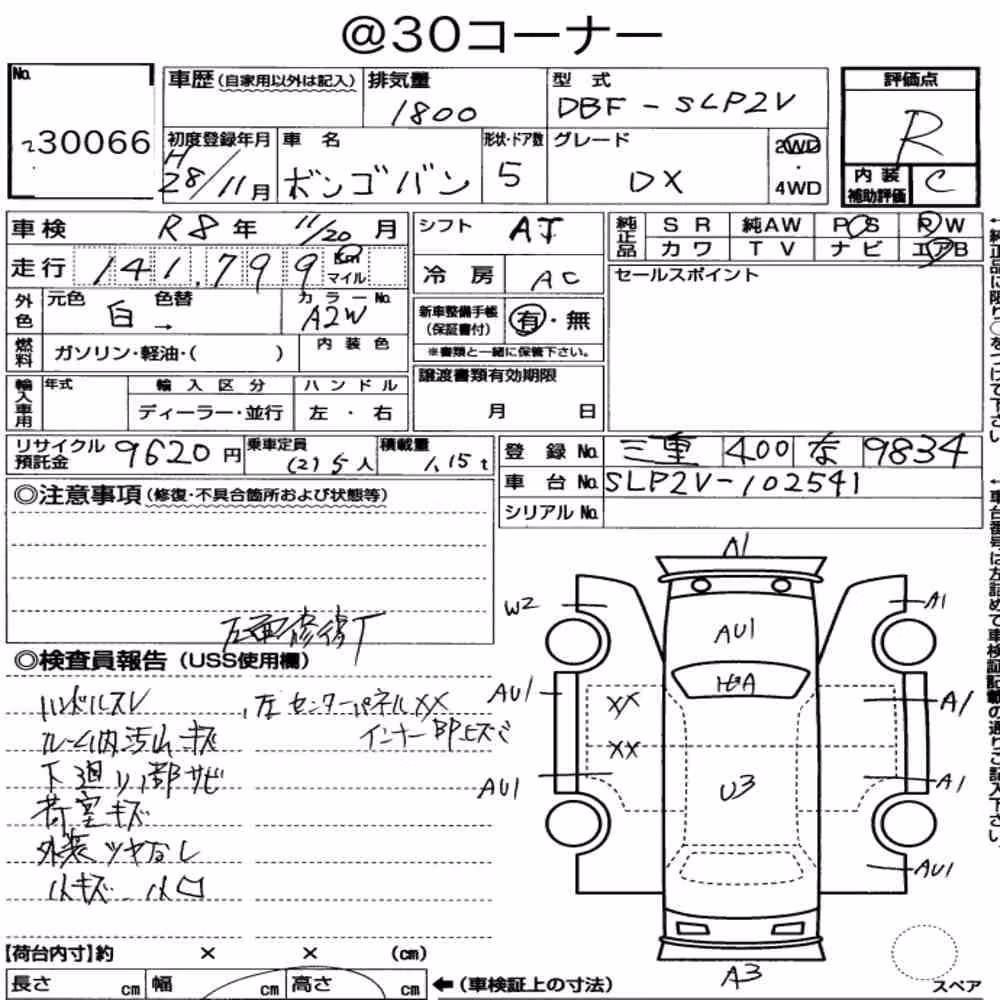 @30コーナー
No. 230066
車歴(自家用以外は記入)
排気量 1800
型式 DBF-SLP2V
評価点 R
初度登録年月 H28/11月
車名 ボンゴバン
形状・ドア数 5
グレード DX
2WD・4WD
内装補助評価 C
車検 R8年 11/20月
シフト AT
純正品 SR 純AW PS RW
カワ TV ナビ エアB
走行 141,799 Km マイル
冷房 AC
セールスポイント
外色 元色 白 色替 → カラーNo. A2W
新車整備手帳(保証書付) 有・無
※書類と一緒に保管下さい。
燃料 ガソリン・軽油・( ) 内装色
譲渡書類有効期限
月 日
輸入車用 年式 輸入区分 ハンドル
ディーラー・並行 左・右
リサイクル預託金 9620円
乗車定員 (2)5人
積載量 1.15t
登録No. 三重 400 な 9834
車台No. SLP2V-102541
シリアルNo.
◎注意事項(修復・不具合箇所および状態等)
左面修復
◎検査員報告(USS使用欄)
ハンドルスレ
ルーム内汚れ キズ
下廻り 部サビ
荷室キズ
外装ツヤなし
小キズ 小凹
左センターパネルXX
インナーBPヒズミ
A1
W2
A1
AU1
AU1
XX
A1
XX
AU1
U3
A1
AU1
A3
【荷台内寸】約 × × (cm)
長さ cm 幅 cm 高さ cm
←(車検証上の寸法)
スペア
←純正品に限り○をつけて下さい。
←車台番号は左詰めで車検証記載の通りご記入下さい。